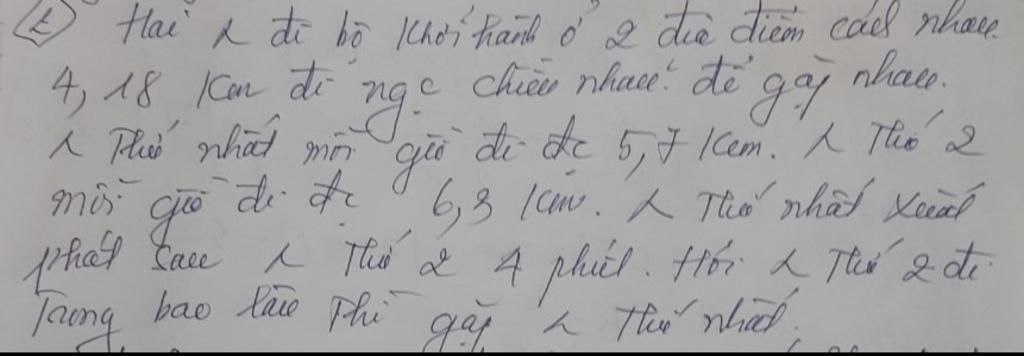 ② Hai λ đi bộ khởi hành ở 2 địa điểm cách nhau
4,18 km đi ngc chiều nhau để gặp nhau.
λ thứ nhất mỗi giờ đi đc 5,7 km. λ thứ 2
mỗi giờ đi đc 6,3 km. λ thứ nhất xuất
phát sau λ thứ 2 4 phút. Hỏi λ thứ 2 đi
trong bao lâu thì gặp λ thứ nhất.